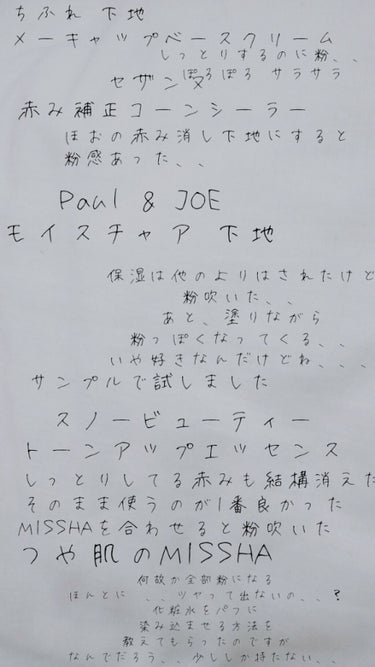 ちふれ 下地
メーキャップベースクリーム
しっとりするのに粉、、
ぽろぽろ サラサラ
セザンヌ
赤み補正コーンシーラー
ほおの赤み消し下地にすると
粉感あった、、
Paul & JOE
モイスチャア 下地
保湿は他のよりはされたけど
粉吹いた、、
あと、塗りながら
粉っぽくなってくる、、
いや好きなんだけどね、、、
サンプルで試しました
スノービューティー
トーンアップエッセンス
しっとりしてる赤みも結構消えた
そのまま使うのが1番良かった
MISSHAを合わせると粉吹いた
つや肌のMISSHA
何故か全部粉になる
ほんとに 、、ツヤって出ないの、、?
化粧水をパフに
染み込ませる方法を
教えてもらったのですが
なんでだろう、、少ししか持たない